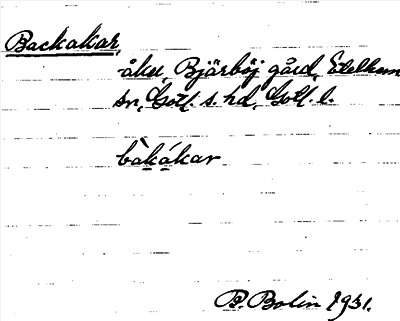 Backakar,
åker, Bjärböj gård, Ekelhem
sn, Gotl. s. hd, Gotl. l.
bàkákar
B. Bolin 1931.